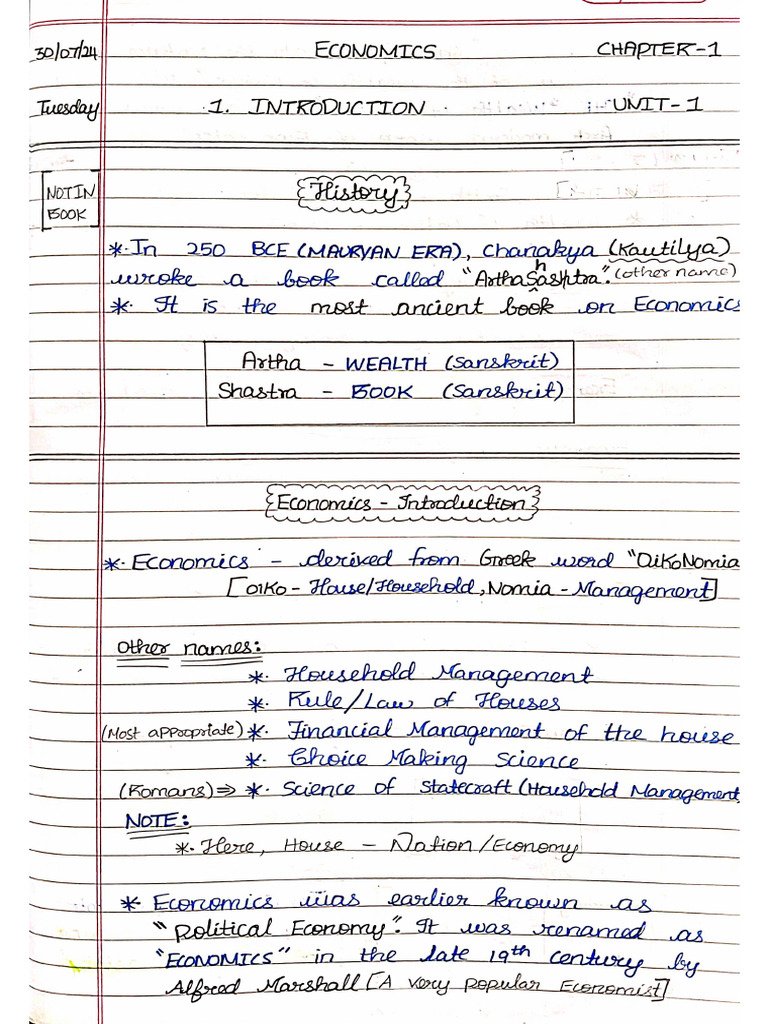 30/07/24 ECONOMICS CHAPTER-1
Tuesday 1. INTRODUCTION UNIT-1
[NOT IN BOOK]
History
*. In 250 BCE (MAURYAN ERA), Chanakya (Kautilya)
wrote a book called "ArthaShashtra". (other name)
*. It is the most ancient book on Economics
Artha - WEALTH (Sanskrit)
Shastra - BOOK (Sanskrit)
Economics - Introduction
*. Economics - derived from Greek word "OikoNomia
[OIKO - House/Household, Nomia - Management]
Other names:
*. Household Management
*. Rule/Law of Houses
(Most appropriate) *. Financial Management of the house
*. Choice Making Science
(Romans) ⇒ *. Science of Statecraft (Household Management
NOTE:
*. Here, House - Nation/Economy
* Economics was earlier known as
"Political Economy". It was renamed as
"ECONOMICS" in the late 19th century by
Alfred Marshall [A very popular Economist]